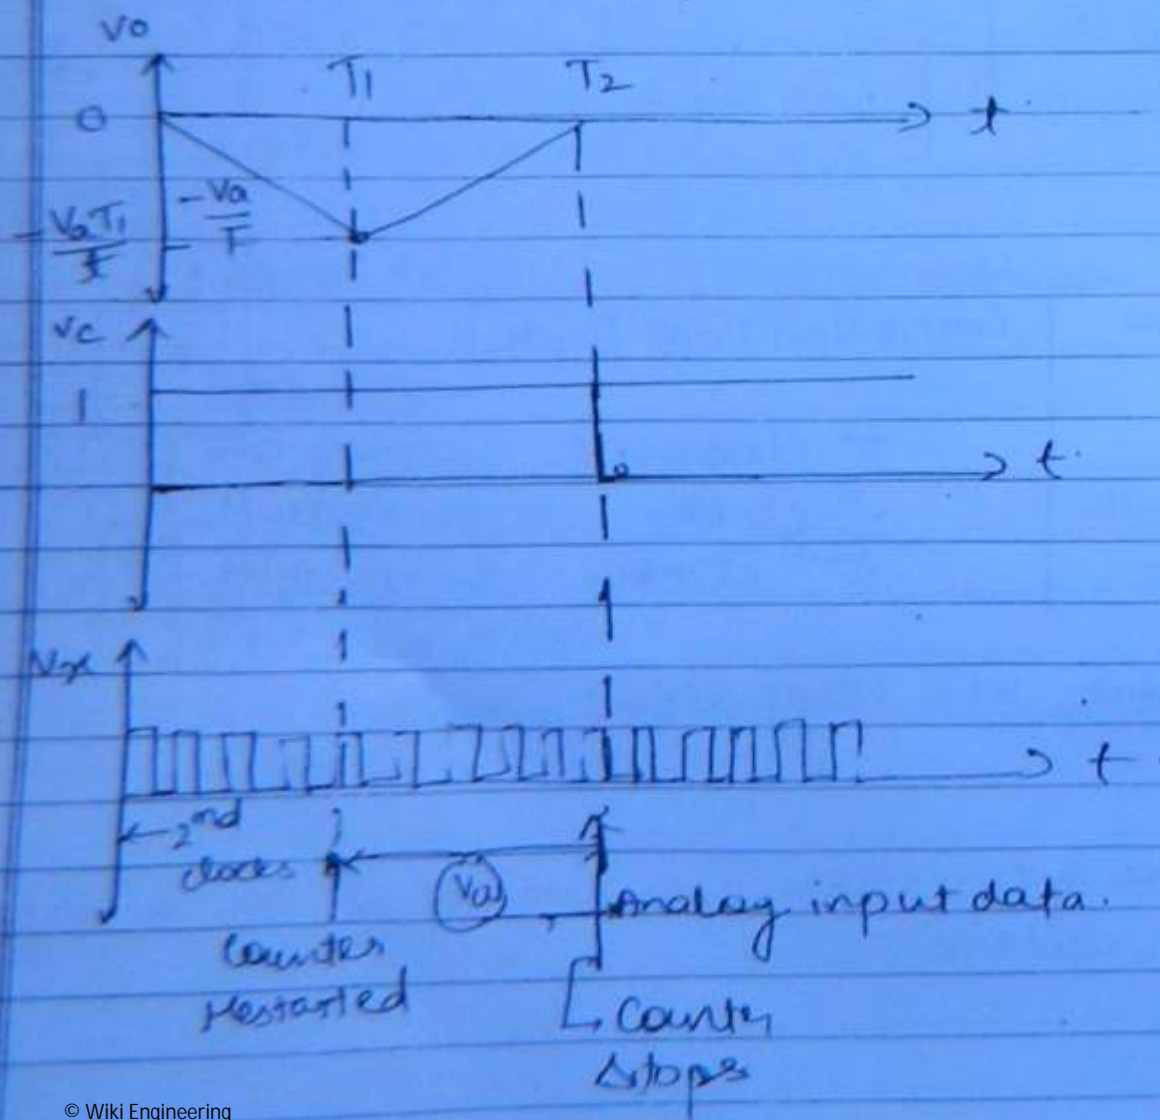 Vo
T1
T2
0
t
-VaT1/τ
-Va/τ
Vc
1
0
t
t
←2nd
clocks
Va
Analog input data.
Counter
Restarted
Counter
stops
© Wiki Engineering